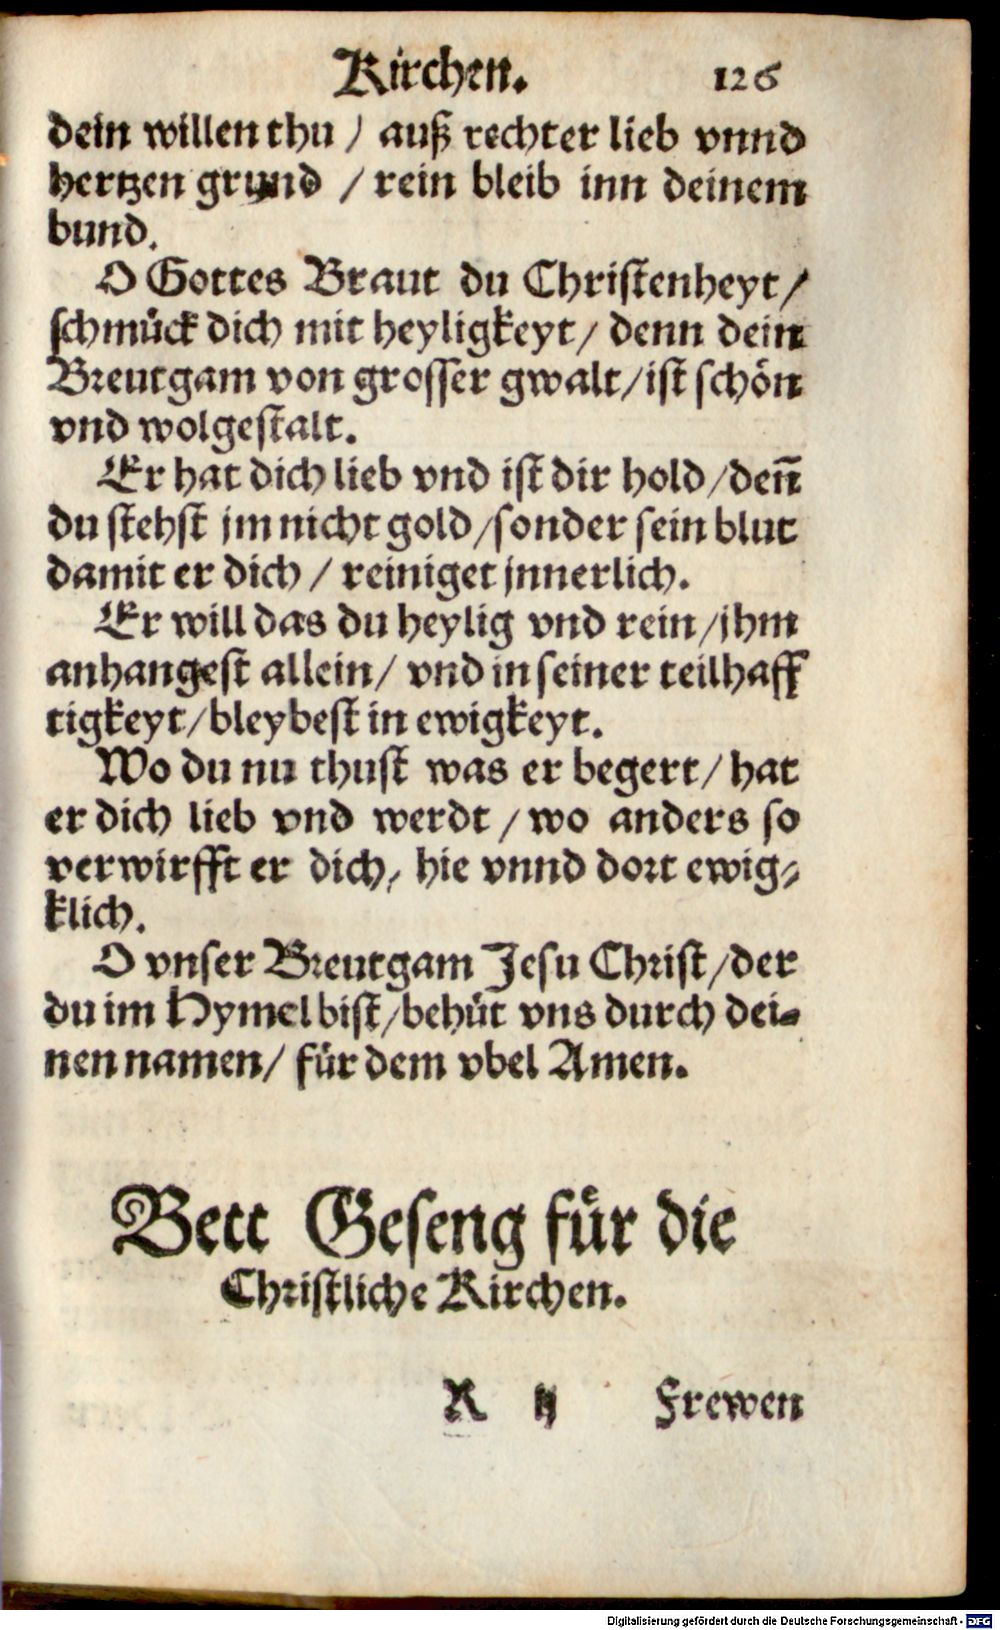 Kirchen. 126
dein willen thu / auß rechter lieb vnnd
hertzen grund / rein bleib inn deinem
bund.
O Gottes Braut du Christenheyt /
schmůck dich mit heyligkeyt / denn dein
Breutgam von grosser gwalt / ist schön
vnd wolgestalt.
Er hat dich lieb vnd ist dir hold / den̄
du stehst jm nicht gold / sonder sein blut
damit er dich / reiniget jnnerlich.
Er will das du heylig vnd rein / jhm
anhangest allein / vnd in seiner teilhaff
tigkeyt / bleybest in ewigkeyt.
Wo du nu thust was er begert / hat
er dich lieb vnd werdt / wo anders so
verwirfft er dich / hie vnnd dort ewig-
klich.
O vnser Breutgam Jesu Christ / der
du im Hymel bist / behůt vns durch dei-
nen namen / für dem vbel Amen.
Bett Geseng für die
Christliche Kirchen.
R ij Frewen
Digitalisierung gefördert durch die Deutsche Forschungsgemeinschaft - DFG